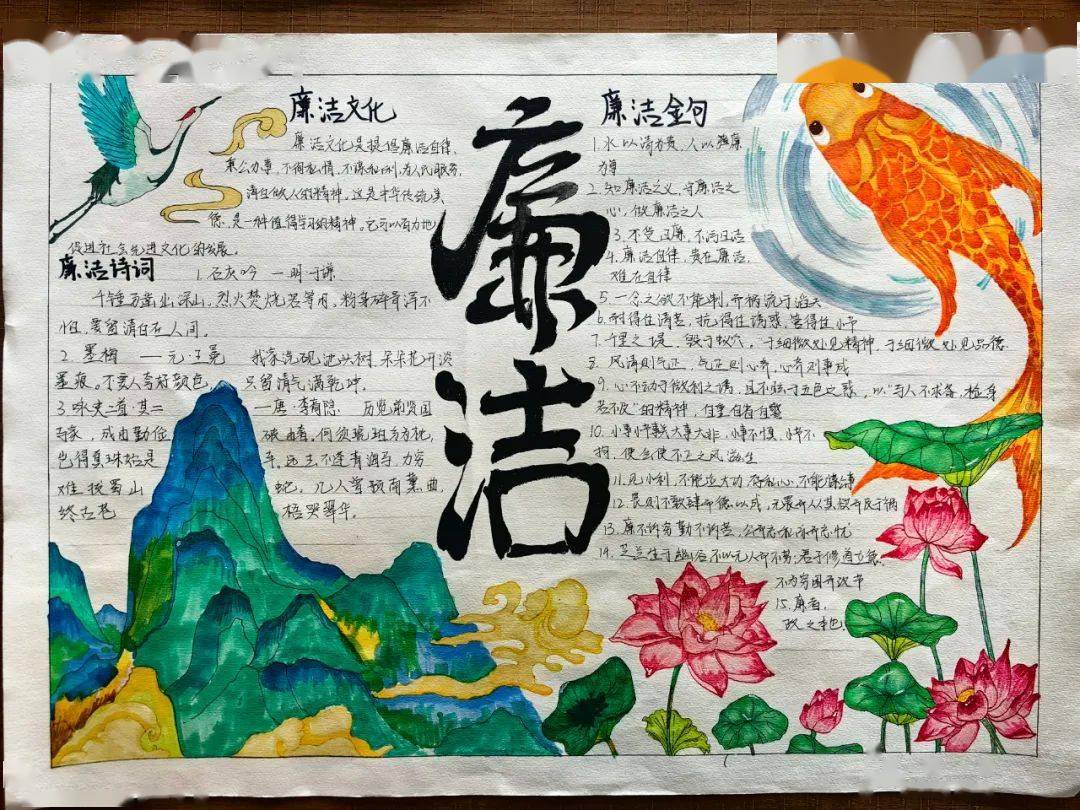 廉洁文化
廉洁文化是提倡廉洁自律、
秉公办事、不徇私情、不谋私利、为人民服务、
清白做人的精神。这是中华传统美
德,是一种值得学习的精神。它可以有力地
促进社会先进文化的发展。
廉洁诗词
1.石灰吟 —明·于谦
千锤万凿出深山,烈火焚烧若等闲,粉身碎骨浑不
怕,要留清白在人间。
2.墨梅 —元·王冕 我家洗砚池头树,朵朵花开淡
墨痕。不要人夸好颜色,只留清气满乾坤。
3.咏史二首·其二 —唐·李商隐 历览前贤国
与家,成由勤俭破由奢,何须琥珀方为枕,
岂得真珠始是车,运去不逢青海马,力穷
难拔蜀山蛇,几人曾预南薰曲,
终古苍梧哭翠华。
廉洁
廉洁金句
1.水以清为贵,人以廉
为尊
2.知廉洁之义,守廉洁之
心,做廉洁之人
3.不受曰廉,不污曰洁
4.廉洁自律,贵在廉洁,
难在自律
5.一念之欲不能制,而祸流于滔天
6.耐得住清苦,抗得住诱惑,管得住小节
7.千里之堤,毁于蚁穴,于细微处见精神,于细微处见品德
8.风清则气正,气正则心齐,心齐则事成
9.心不动于微利之诱,目不眩于五色之惑,以"与人不求备,检身
若不及"的精神,自重自省自警
10.小事小节藏大事大非,小事不慎,小节不
拘,便会使不正之风滋生
11.见小利,不能立大功,存私心,不能谋公事
12.畏则不敢肆而德以成,无畏则从其欲而及于祸
13.廉不诉穷勤不诉苦,公而忘私
14.芝兰生于幽谷不以无人而不芳,君子修道立德,
不为穷困而改节
15.廉者,
政之本也